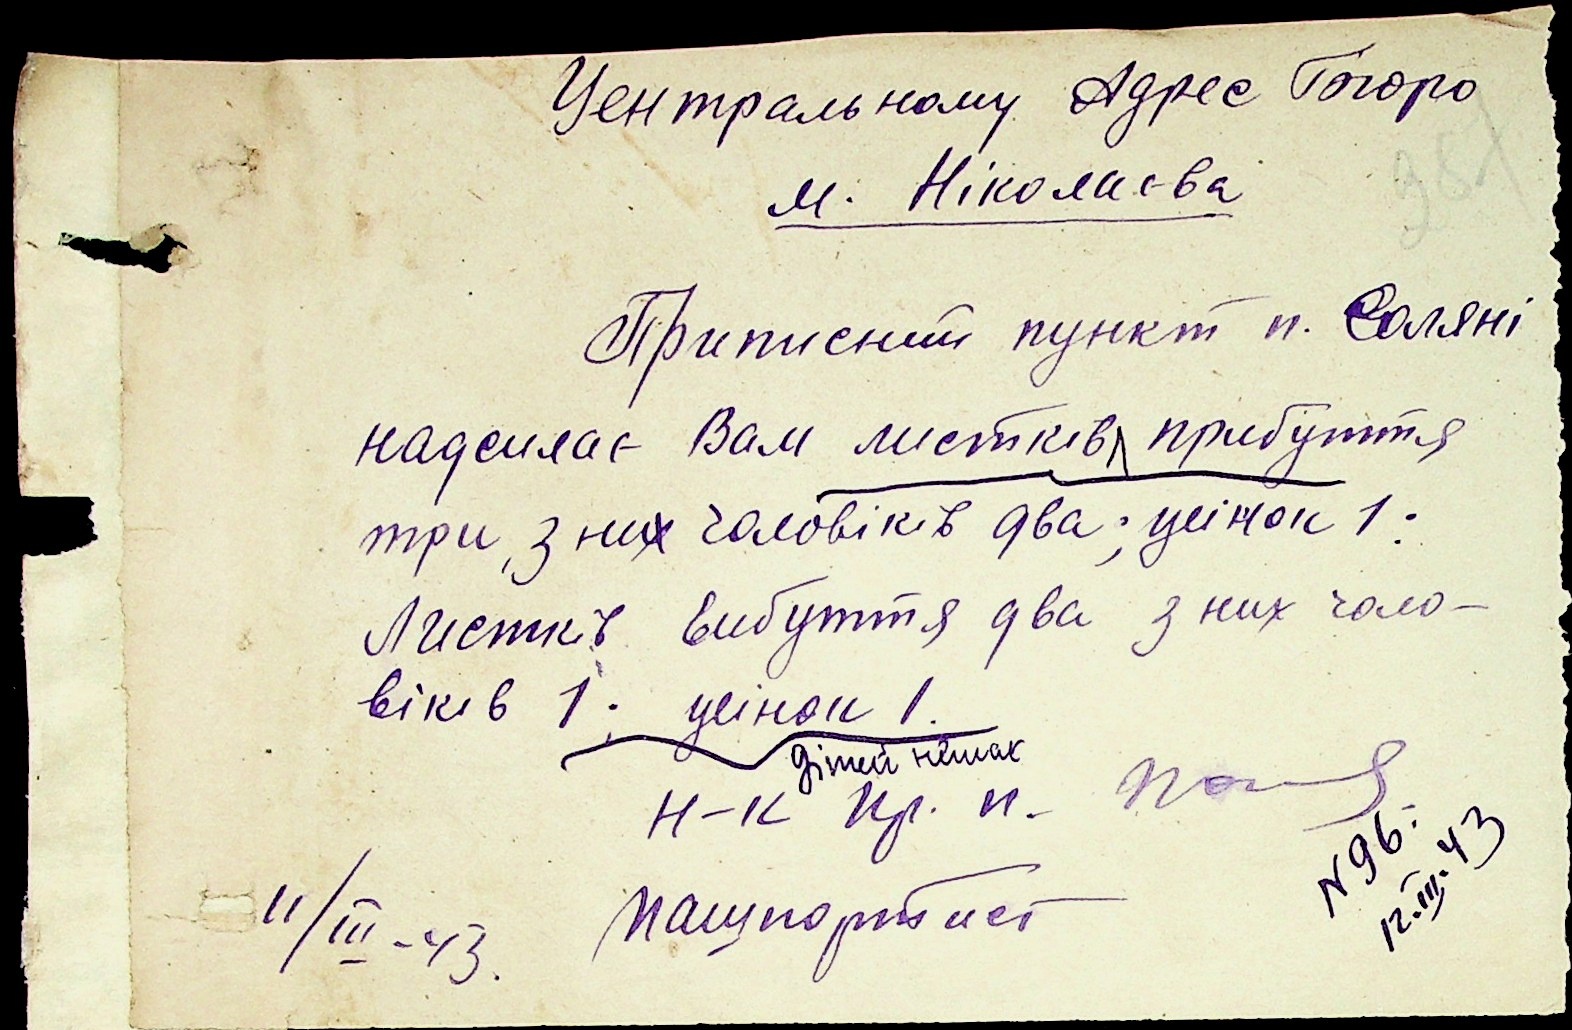 Центральному Адрес Бюро
м. Ніколаєва
Приписний пункт п. Соляні
надсилає Вам листків прибуття
три, з них чоловіків два; жінок 1:
Листків вибуття два з них чоло-
віків 1; жінок 1.
дітей немає
Н-к Пр. п.
Пашпортист
11/III-43.
N 96:
12.III.43